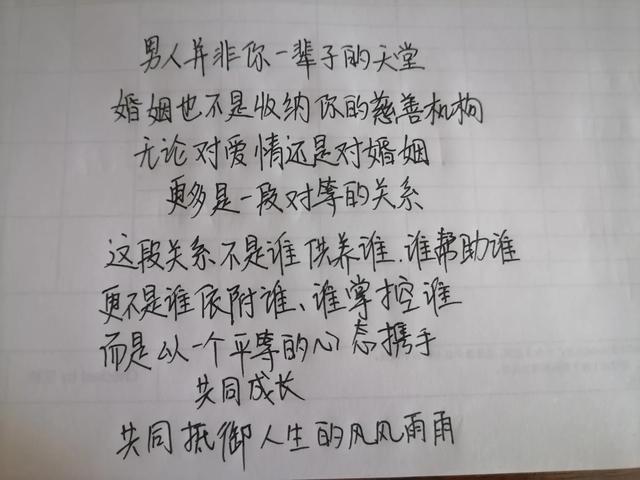 男人并非你一辈子的天堂
婚姻也不是收纳你的慈善机构
无论对爱情还是对婚姻
更多是一段对等的关系
这段关系不是谁供养谁.谁帮助谁
更不是谁依附谁、谁掌控谁
而是以一个平等的心态携手
共同成长
共同抵御人生的风风雨雨